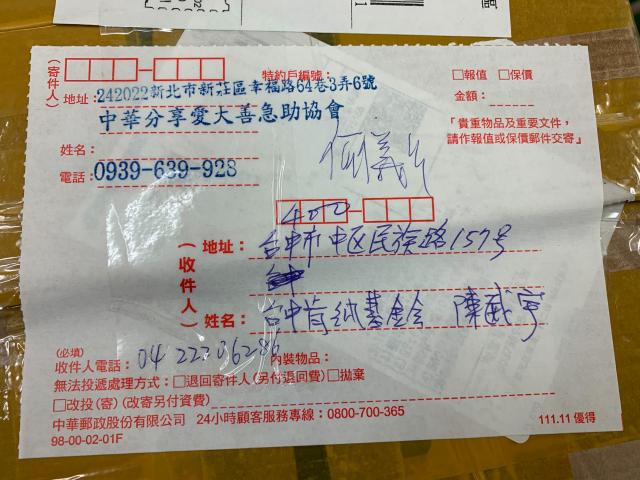 (寄件人)
特約戶編號:
□報值 □保價
地址: 242022新北市新莊區幸福路64巷3弄6號
金額:
中華分享愛大善急助協會
「貴重物品及重要文件,
請作報值或保價郵件交寄」
姓名:
電話: 0939-639-928
400
(收件人)
地址: 台中市中区民族路157号
姓名: 台中肯納基金會 陳
(必填)
收件人電話: 04 內裝物品:
無法投遞處理方式:□退回寄件人(另付退回費)□拋棄
□改投(寄)(改寄另付資費)
中華郵政股份有限公司 24小時顧客服務專線:0800-700-365
98-00-02-01F
111.11 優得